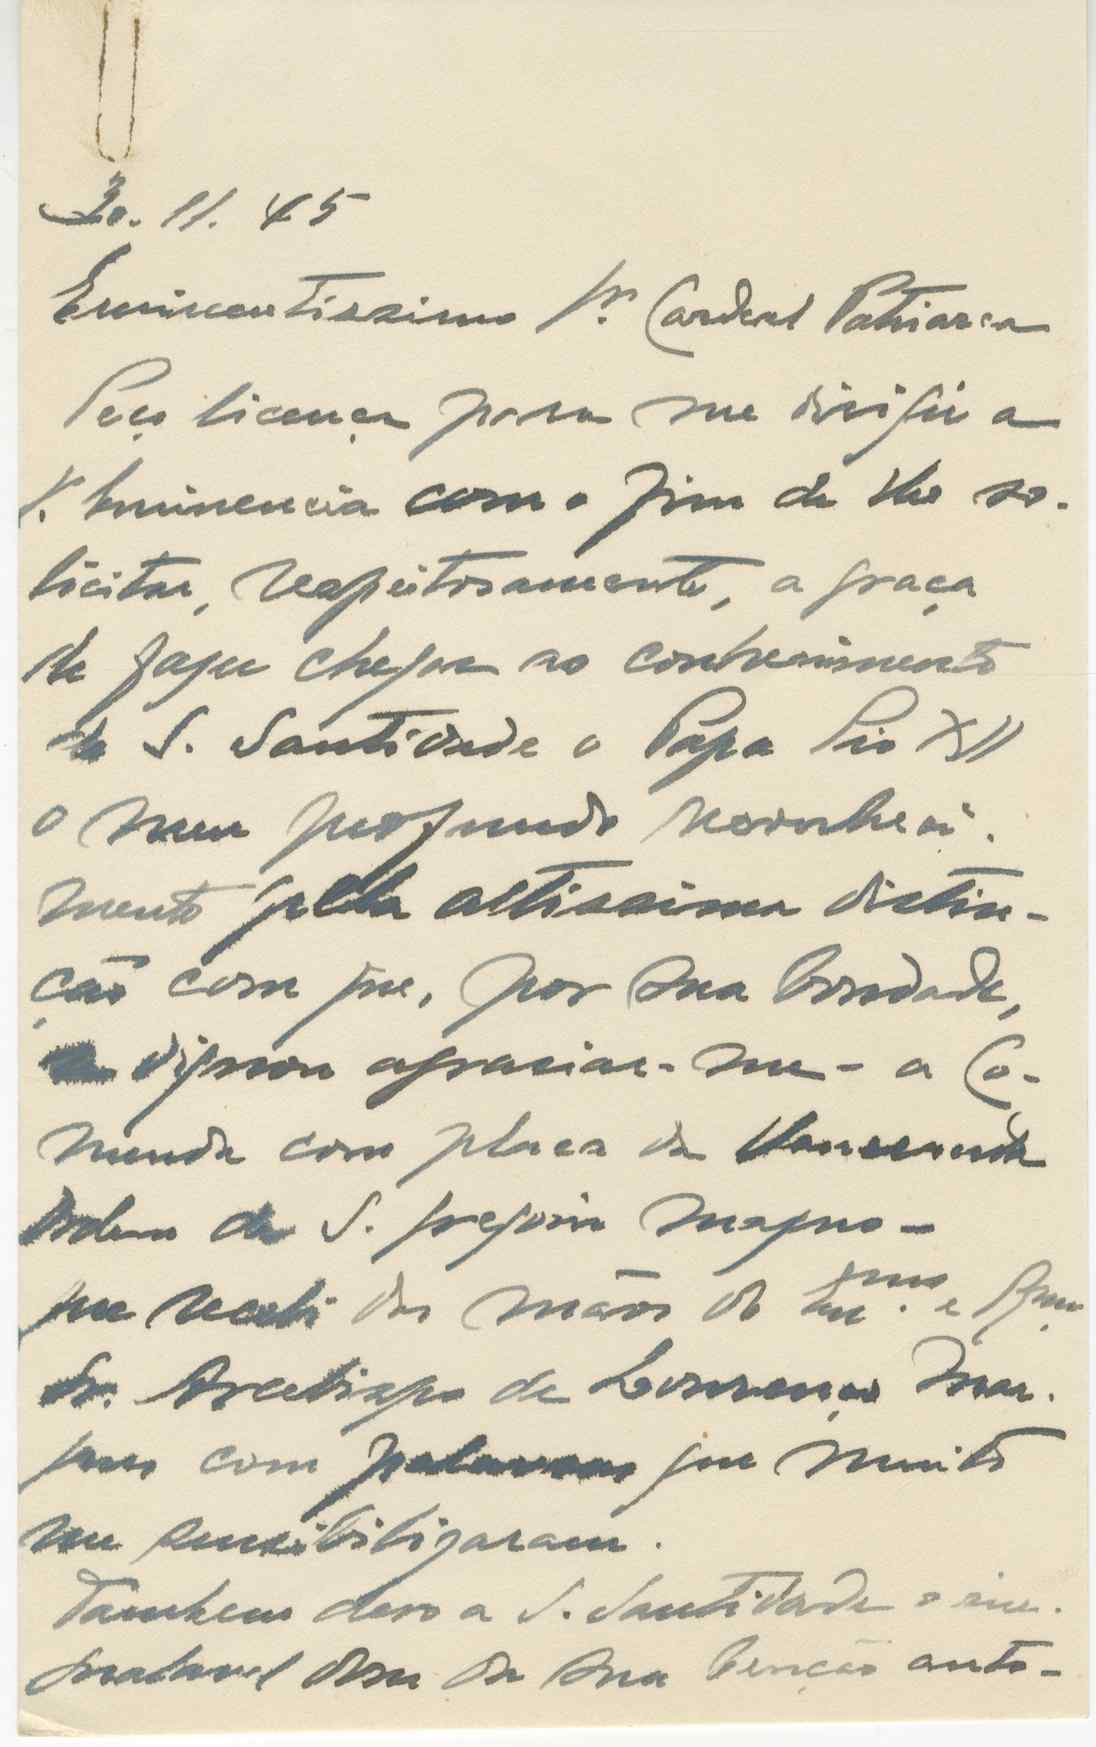 30.11.45
Eminentissimo Sr. Cardeal Patriarca
Peço licença para me dirigir a
V. Eminencia com o fim de lhe so-
licitar, respeitosamente, a graça
de fazer chegar ao conhecimento
de S. Santidade o Papa Pio XII
o meu profundo reconheci-
mento pela altissima distin-
ção com que, por sua bondade,
se dignou agraciar-me - a Co-
menda com placa da
Ordem de S. Gregorio Magno -
que recebi das mãos do Em.mo e
Sr. Arcebispo de Lourenço Mar-
ques com palavras que muito
me sensibilizaram.
Tambem devo a S. Santidade o ines-
dom da sua benção auto-